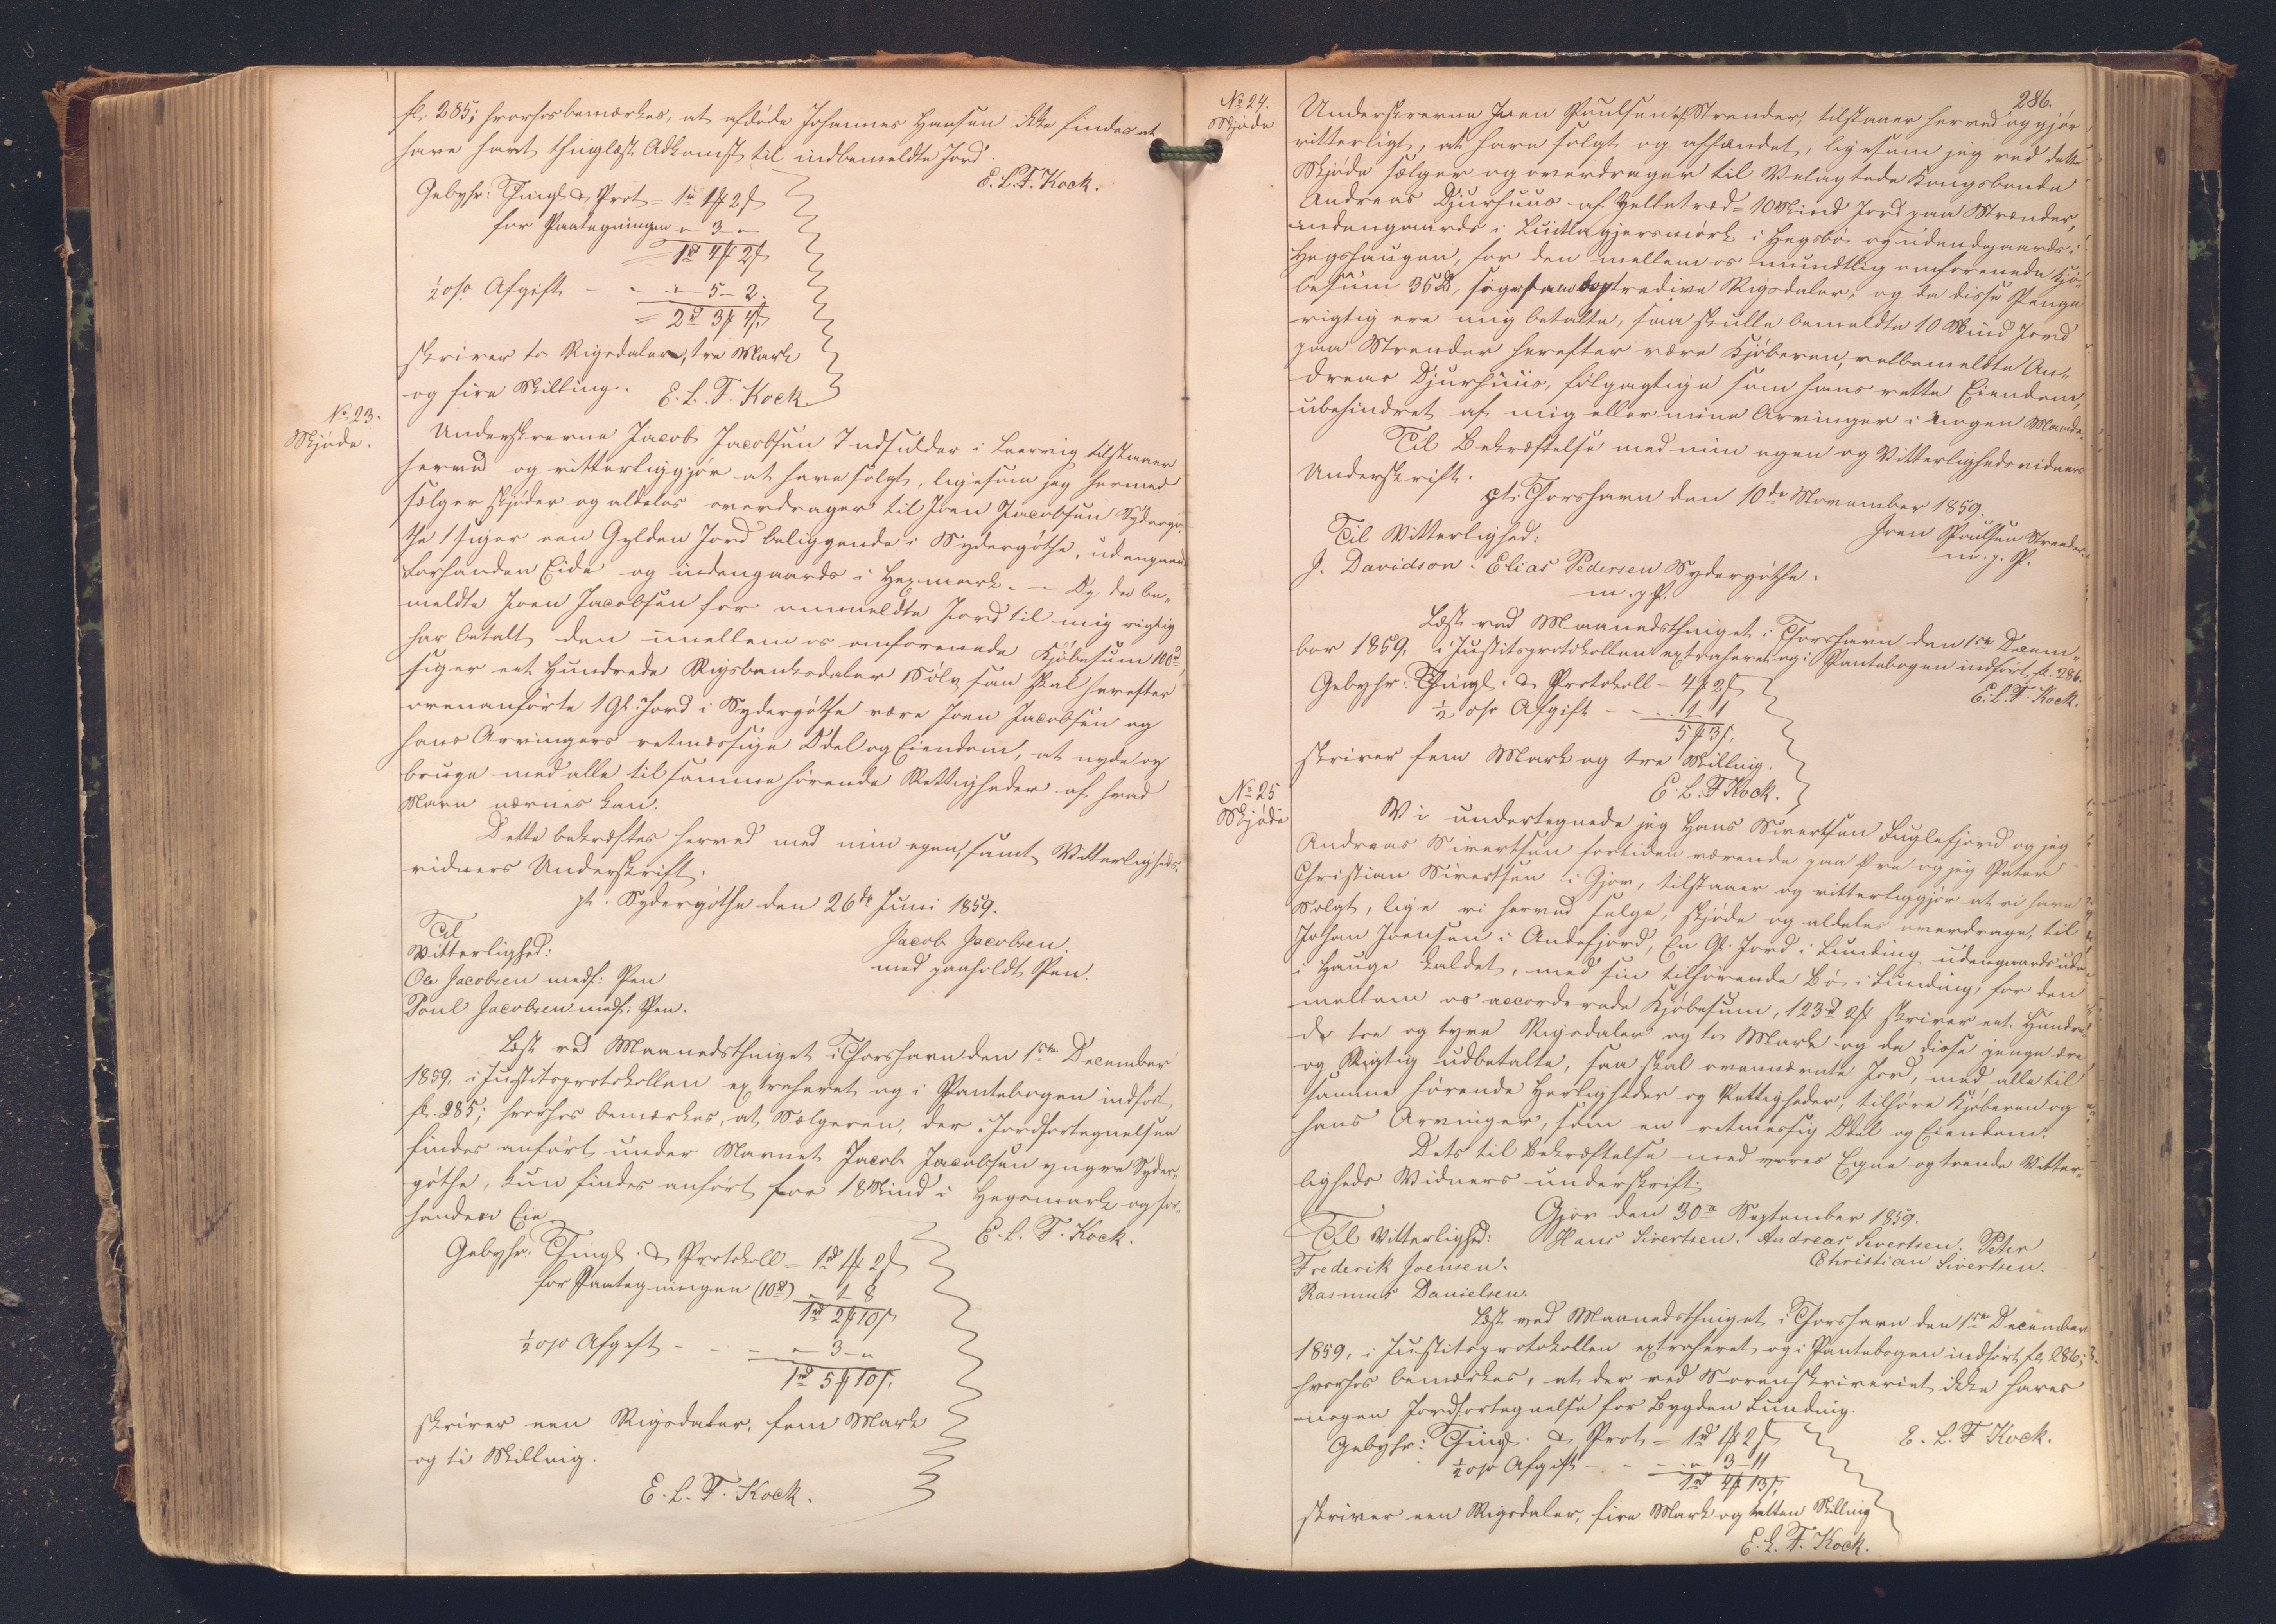 fl. 285; hvorhos bemærkes, at afdøde Johannes Hansen ikke findes at
have havt thinglæst Adkomst til indbemeldte Jord.
E. L. F. Kock.
Gebyhr: Thingl. & Prot = 1rd 1# 2ß
for Paategningen " 3 "
= 1rd 4# 2ß
½ o/o Afgift - " " 5 - 2.
= 2rd 3# 4ß
skriver to Rigsdaler, tre Mark
og fire Skilling. E. L. F. Kock
No 23.
Skjøde.
Underskrevne Jacob Jacobsen Indsidder i Leervig tilstaaer
herved og vitterliggjør at have solgt, ligesom jeg hermed
sælger skjøder og aldeles overdrager til Joen Jacobsen Sydergø-
the 1 siger een Gylden Jord beliggende i Sydergøthe, udengaards
forhanden Eide og indengaards i Hegmark. - Og da be-
meldte Joen Jacobsen for ommeldte Jord til mig rigtig
har betalt den imellem os omforenede Kjøbesum 100rd,
siger eet Hundrede Rigsbanksdaler Sølv, saa skal herefter
ovenanførte 1 Gl. Jord i Sydergøthe være Joen Jacobsen og
hans Arvingers retmæssige Odel og Eiendom, at nyde og
bruge med alle til samme hørende Rettigheder af hvad
Navn nævnes kan.
Dette bekræftes herved med min egen, samt Vitterligheds-
vidners Underskrift.
pt. Sydergøthe den 26de Juni 1859.
Til
Vitterlighed:
Jacob Jacobsen.
med paaholdt Pen.
Ole Jacobsen medf: Pen
Poul Jacobsen medf: Pen.
Læst ved Maanedsthinget i Thorshavn den 1ste December
1859, i Justitsprotokollen extraheret og i Pantebogen indført
fl. 285; hvorhos bemærkes, at Sælgeren, der i Jordfortegnelsen
findes anført under Navnet Jacob Jacobsen yngre Syder-
gøthe, kun findes anført for 18 Skind i Hegsmark og for-
handen Eie
E. L. F. Kock.
Gebyhr: Thingl. & Protokoll = 1rd 1# 2ß
for Paategningen (10ß) " 1 - 8
1rd 2# 10ß
½ o/o Afgift - - - " 3 - "
1rd 5# 10ß.
skriver een Rigsdaler, fem Mark
og ti Skilling.
E. L. F. Kock.
286.
No 24.
Skjøde
Underskrevne Joen Poulsen af Strender, tilstaaer herved og gjør
vitterligt, at have solgt og afhændet, ligesom jeg ved dette
Skjøde sælger og overdrager til Velagtede Kongsbonde
Andreas Djurhuus af Selletræd = 10 Skind Jord paa Strender,
indengaards i i Hegsbø og udengaards i
Hegshaugen, for den mellem os mundtlig omforenede Kjø-
besum 36rd, siger sex og tredive Rigsdaler, og da disse Penge
rigtig ere mig betalte, saa skulle bemeldte 10 Skind Jord
paa Strender herefter være Kjøberen, velbemeldte An-
dreas Djurhuus, følgagtige som hans rette Eiendom,
ubehindret af mig eller mine Arvinger i nogen Maade.
Til Bekræftelse med min egen og Vitterlighedsvidners
Underskrift.
pt. Thorshavn den 10de November 1859.
Joen Poulsen Strender.
m. p. P.
Til Vitterlighed:
J. Davidson. Elias Pedersen Sydergøthe.
m. p. P.
Læst ved Maanedsthinget i Thorshavn den 1ste Decem-
ber 1859, i Justitsprotokollen extraheret og i Pantebogen indført fl. 286.
E. L. F. Kock.
Gebyhr: Thingl. & Protokoll = 4# 2ß
½ o/o Afgift - - . . 1. 1
5# 3ß.
skriver fem Mark og tre Skilling.
E. L. F Kock.
No 25
Skjøde
Vi undertegnede jeg Hans Sivertsen Fuglefjord og jeg
Andreas Sivertsen fortiden værende paa og jeg Peter
Christian Sivertsen i Gjov, tilstaaer og vitterliggjør at vi have
Solgt, lige vi herved selge, skjøde og aldeles overdrage, til
Johan Joensen i Andefjord, En Gl. Jord i Funding udengaards ude
i Hauge kaldet, med sin tilhørende Bø i Funding, for den
mellem os accorderede Kjøbesum, 123rd 2# skriver eet Hundre-
de tre og tyve Rigsdaler og to Mark og da disse penge ere
og Rigtig udbetalte, saa skal ovennævnte Jord, med alle til
samme hørende Herligheder og Rettigheder, tilhøre Kjøberen og
hans Arvinger, som en retmessig Odel og Eiendom.
Dets til Bekræftelse med vores Egne og trende Vitter-
ligheds Vidners underskrift.
Gjov den 30te September 1859.
Til Vitterlighed: Hans Sivertsen. Andreas Sivertsen. Peter
Christian Sivertsen.
Frederik Joensen.
Rasmus Danielsen.
Læst ved Maanedsthinget i Thorshavn den 1ste December
1859, i Justitsprotokollen extraheret og i Pantebogen indført fl. 286;
hvorhos bemærkes, at der ved Sorenskriveriet ikke haves
nogen Jordfortegnelse for Bygden Funding.
E. L. F Kock.
Gebyhr: Thingl. & Prot = 1rd 1# 2ß
½ o/o Afgift - - - " 3 - 11
1rd 4# 13ß,
skriver een Rigsdaler, fire Mark og tretten Skilling
E. L. F. Kock.